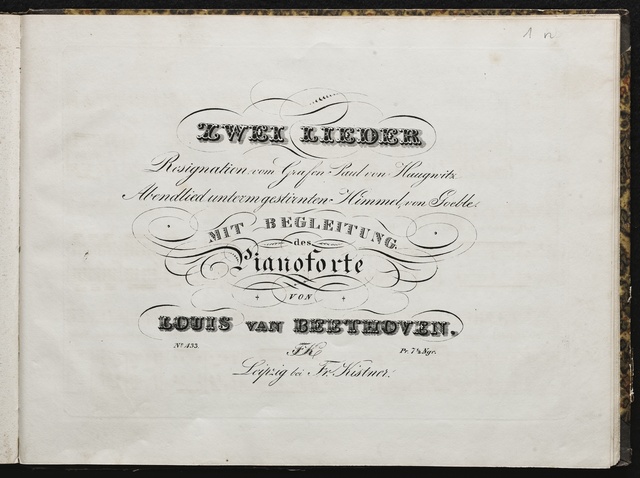 1 n
ZWEI LIEDER
Resignation, vom Grafen Paul von Haugwitz.
Abendlied unterm gestirnten Himmel, von Goeble.
MIT BEGLEITUNG
des
Pianoforte
VON
LOUIS VAN BEETHOVEN.
No. 433.
FK
Pr. 7½ Ngr.
Leipzig bei Fr. Kistner.